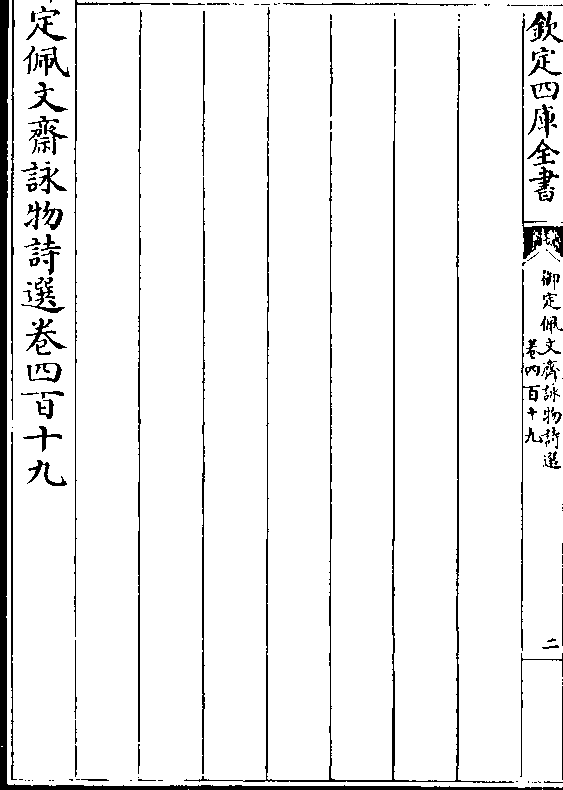 欽定四庫全書
御定佩文齋詠物詩選
卷四百十九
二
定佩文齋詠物詩選卷四百十九